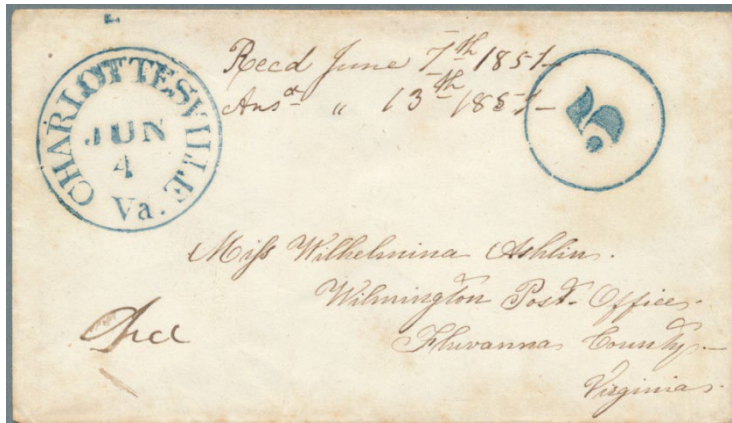 CHARLOTTESVILLE
JUN
4
Va.
Recd June 7th 1851
Ansd " 13th 1851
5
Miss Wilhelmina Ashlin.
Wilmington Post Office.
Fluvanna County
Virginia.